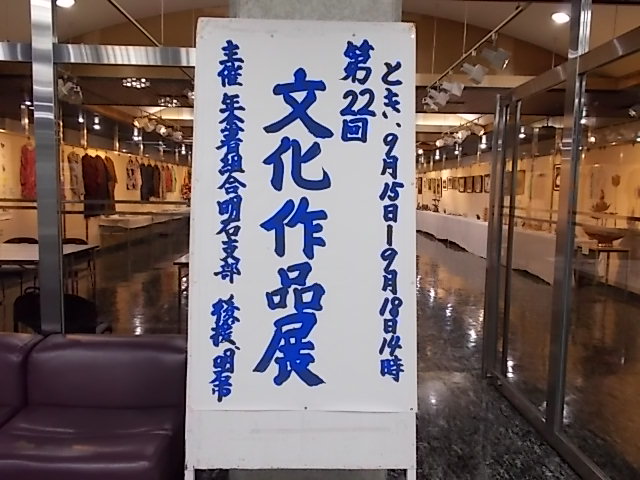 とき、9月15日ー9月18日14時
第22回
文化作品展
主催 年金者組合明石支部 後援、明